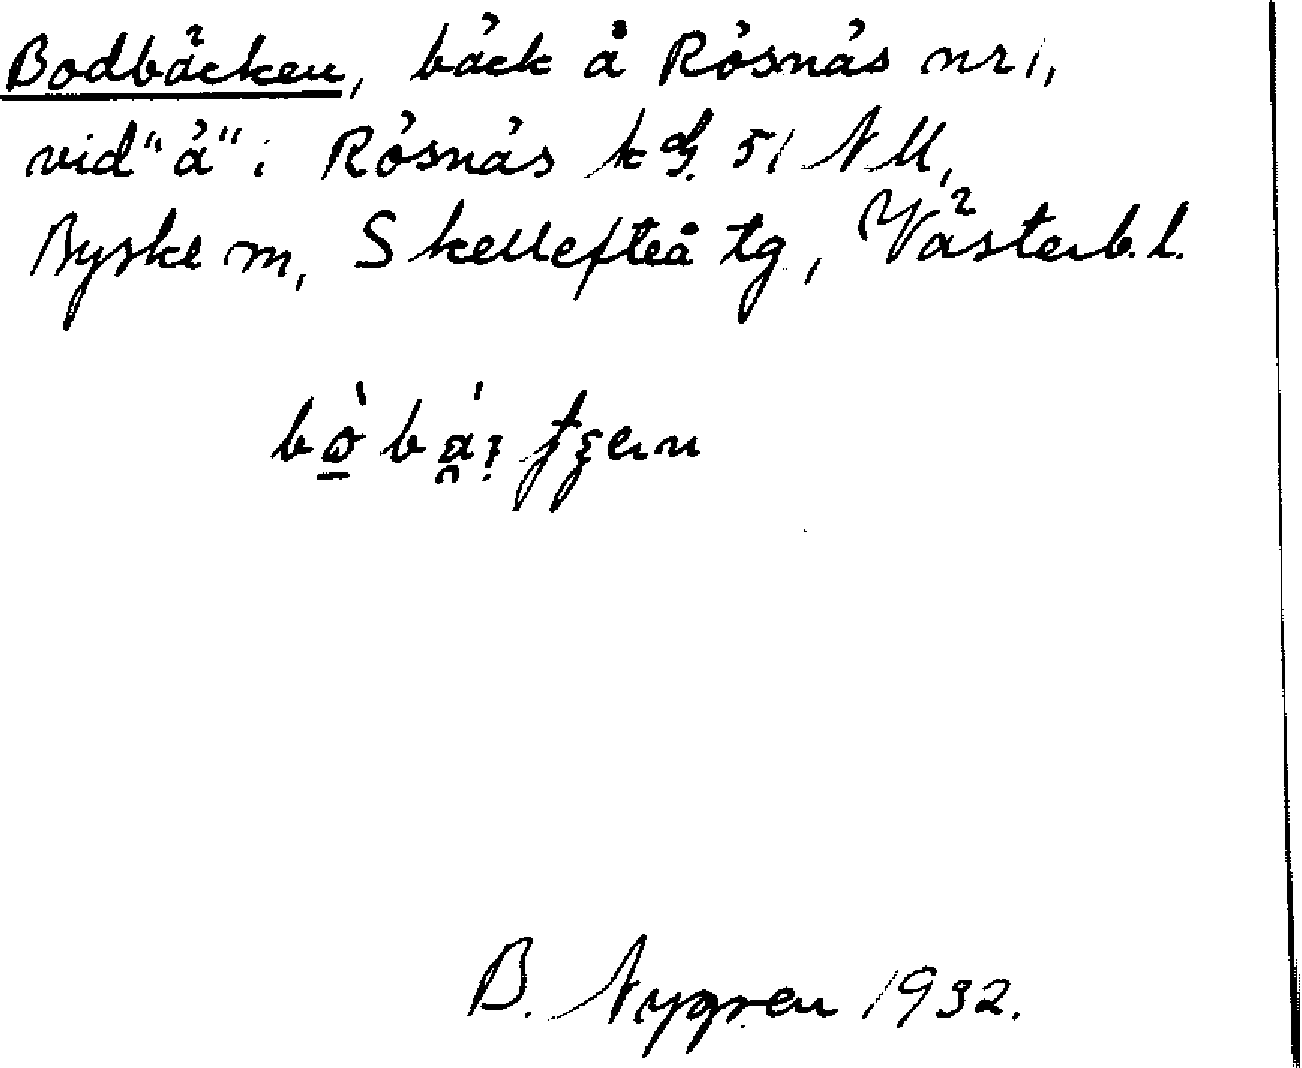 Bodbäcken, bäck å Rösnäs nr 1,
vid "ä" i Rösnäs k bl. 51 NU,
Byske sn, Skellefteå tg, Västerb. l.
B. Nygren 1932.